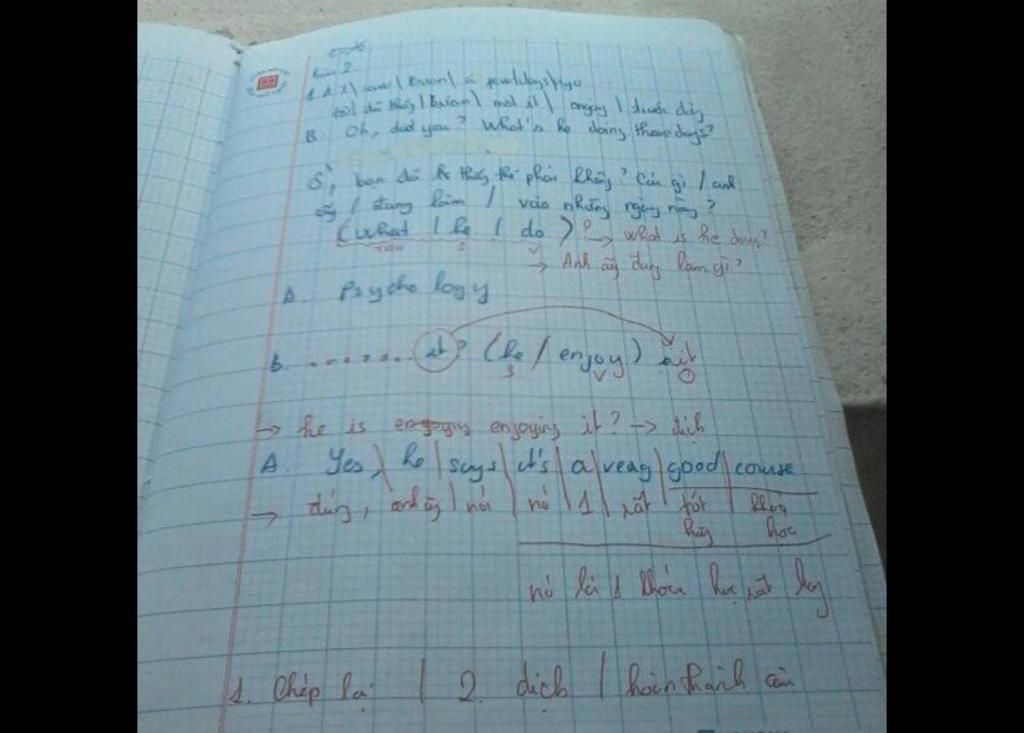 bài 2
1. A. I \ saw \ Brian \ a few \ days \ ago
tôi \ đã thấy \ Brian \ một ít \ ngày \ trước đây
B. Oh, did you? What's he doing these days?
Ồ, bạn đã thấy phải không? Cái gì / anh
ấy / đang làm / vào những ngày này?
(What / he / do)? → What is he doing?
S V
→ Anh ấy đang làm gì?
A. Psychology
B. ........ it? (he / enjoy) it
S V O
→ he is enjoying it? → dịch
A. Yes, he says it's a very good course
→ đúng, anh ấy nói nó 1 rất tốt khóa
hay học
nó là 1 khóa học rất hay
1. Chép lại / 2. dịch / hoàn thành câu